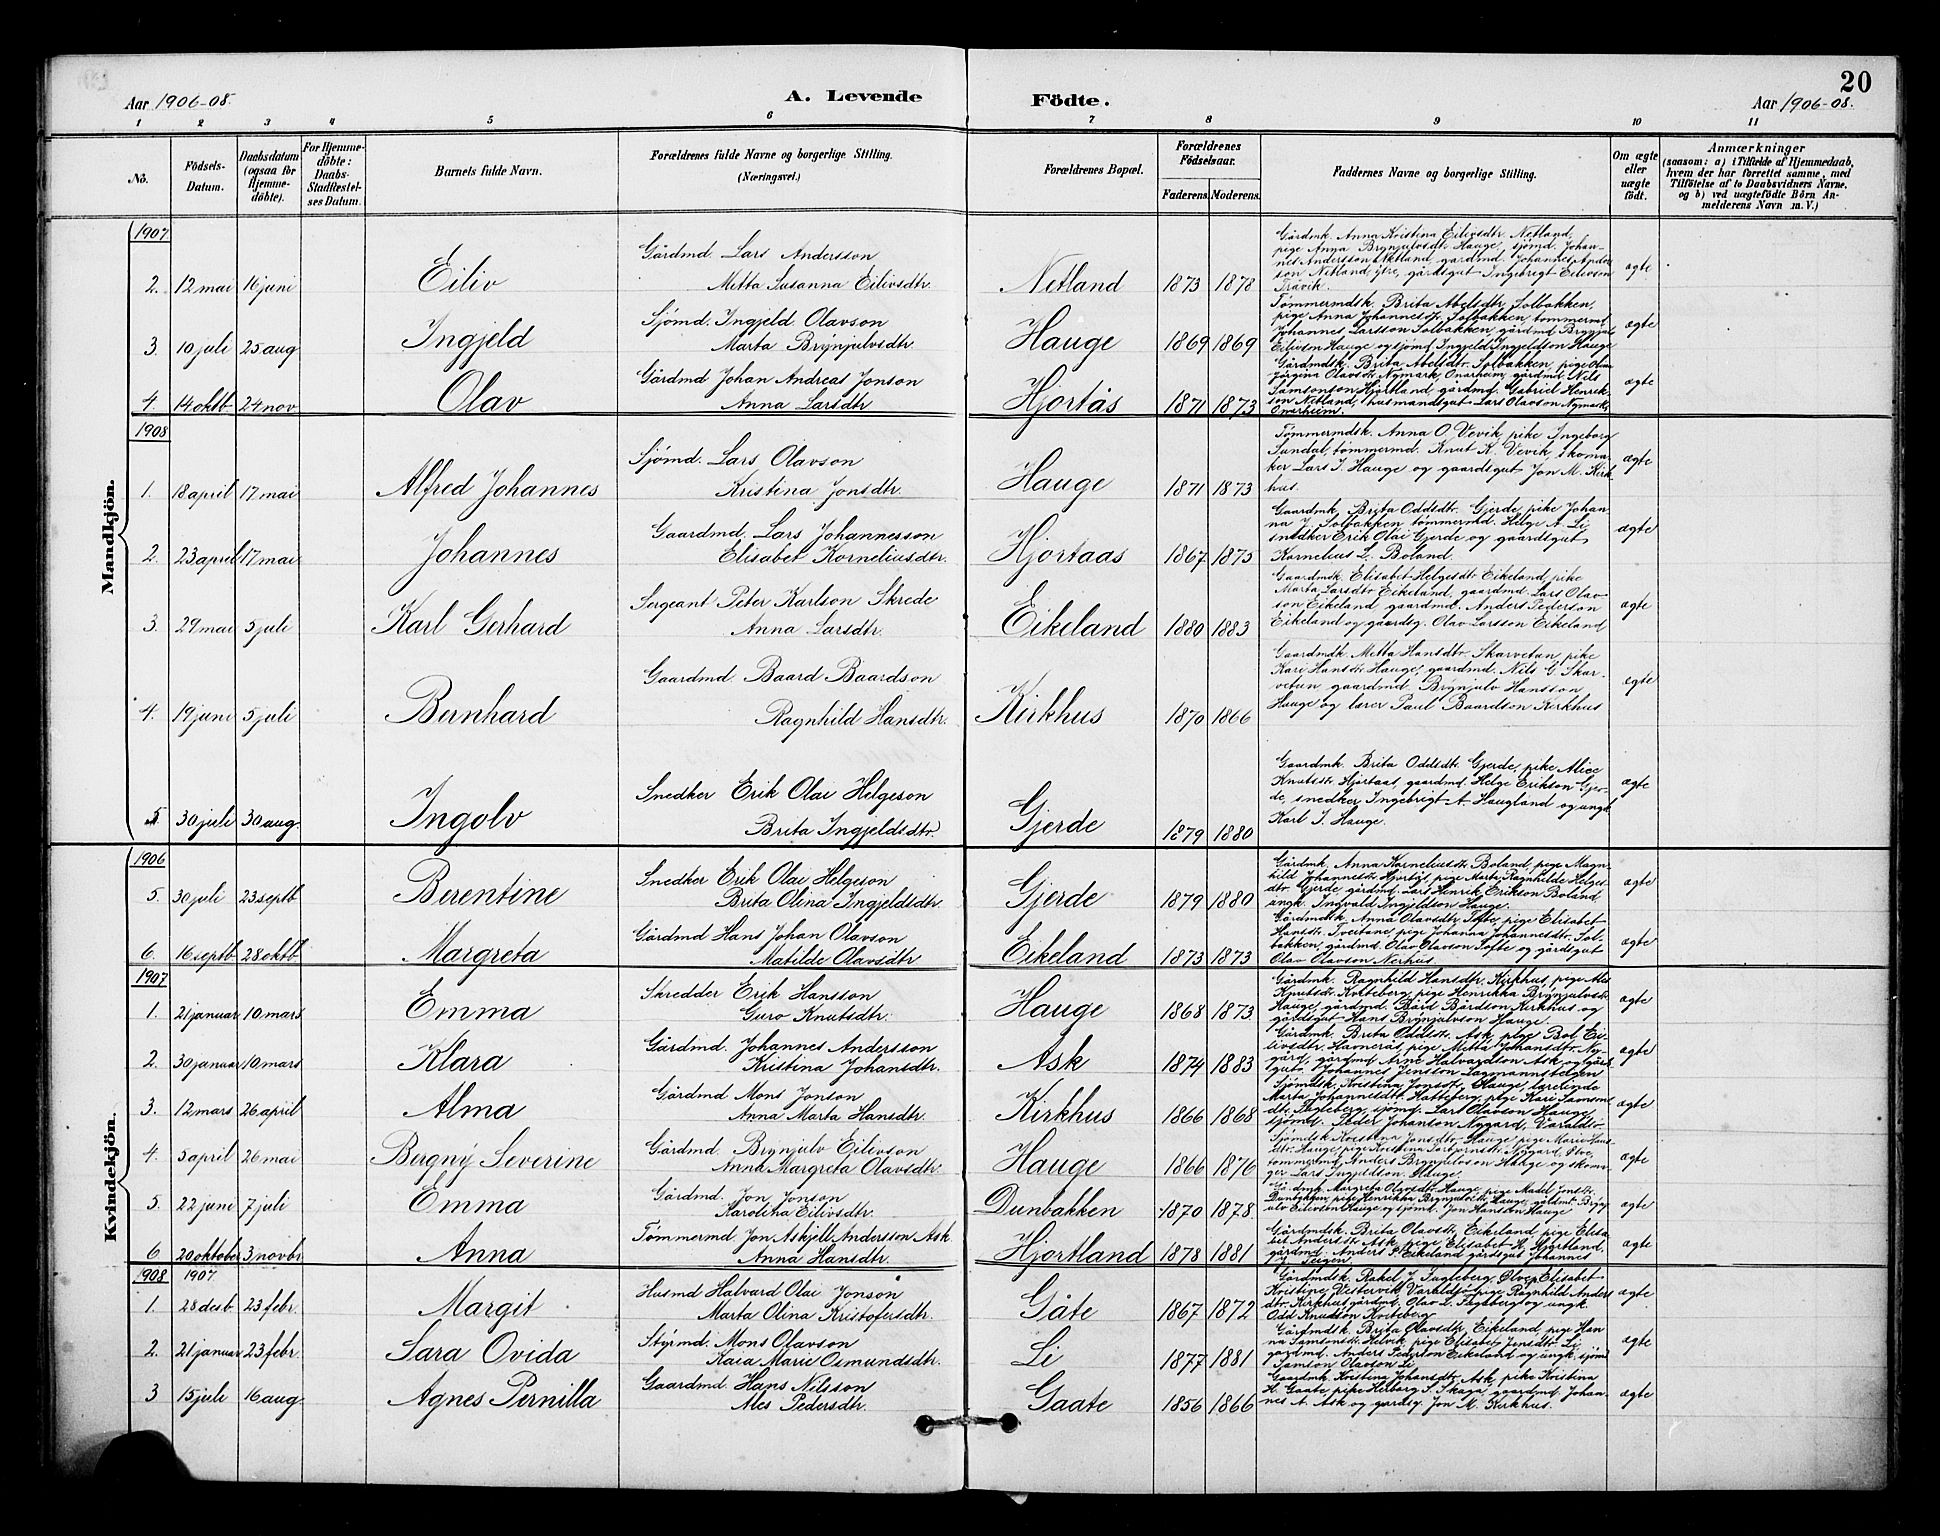 20
Aar 1906-08.
A. Levende
Födte.
Aar 1906-08.
1 2 3 4 5 6 7 8 9 10 11
No.
Födsels-Datum.
Daabsdatum (ogsaa for Hjemme-döbte).
For Hjemme-döbte: Daabs-Stadfæstel-ses Datum.
Barnets fulde Navn.
Forældrenes fulde Navne og borgerlige Stilling.
(Næringsvei.)
Forældrenes Bopæl.
Forældrenes Födselsaar.
Faderens. Moderens.
Faddernes Navne og borgerlige Stilling.
Om ægte eller uægte födt.
Anmærkninger
(saasom: a) i Tilfælde af Hjemmedaab,
hvem der har forrettet samme, med
Tilföielse af to Daabsvidners Navne,
og b) ved uægtefödte Börn An-
melderens Navn m. V.)
Mandkjön.
1907
2. 12 mai 16 juni Eiliv Gårdmd. Lars Andersson
Metta Susanna Eilivsdtr. Netland 1873 1878
Gårdmk. Anna Kristina Eilivsdtr. Netland,
pige Anna Brynjulvsdtr. Hauge, sjömd. Johan-
nes Andersson Netland, gårdmd. Johannes Anders-
son Netland ytre, gårdsgut Ingebrigt Eilivson
Tråvik. ægte
3. 10 juli 25 aug Ingjeld Sjömd. Ingjeld Olavson
Marta Brynjulvsdtr Hauge 1869 1869
Tömmermdsk. Brita Abelsdtr. Solbakken,
pige Anna Johannesdtr. Solbakken, tömmermd.
Johannes Larsson Solbakken, gårdmd Brynjulv
Eilivson Hauge og sjömd. Ingjeld Ingjeldson Hauge ægte
4. 14 oktb 24 nov Olav Gårdmd Johan Andreas Jonson
Anna Larsdtr Hjortås 1871 1873
Gårdmdsk. Brita Abelsdtr. Solbakken, pige Olina
Jörgina Olavsdtr. Nymark, Onarheim, gårdmd. Nils
Samsonson Hjortland, gårdmd. Gabriel Henrik-
son Netland, husmandsgut Lars Olavson Nymark,
Onarheim. ægte
1908
1. 18 april 17 mai Alfred Johannes Sjömd. Lars Olavson
Kristina Jonsdtr. Hauge 1871 1873
Tömmermdsk. Anna O. Vevik, pike Ingeborg
Sundal, tömmermd. Knut K. Vevik, skoma-
ker Lars I. Hauge og gaardsgut Jon M. Kirk-
hus. ægte
2. 23 april 17 mai Johannes Gaardmd. Lars Johannesson
Elisabet Korneliusdtr. Hjortaas 1867 1875
Gaardmk. Brita Oddsdtr. Gjerde, pike Johan-
na J. Solbakken, tömmermd. Helge A. Li,
snedker Erik Olai Gjerde og gaardsgut
Kornelius L. Boland. ægte
3. 29 mai 5 juli Karl Gerhard Sergeant Peter Karlson Skrede
Anna Larsdtr. Eikeland 1880 1883
Gaardmdsk. Elisabet Helgesdtr. Eikeland, pike
Marta Larsdtr Eikeland, gaardmd. Lars Olav-
son Eikeland, gaardmd. Anders Pederson
Eikeland og gaardsg. Olav Larsson Eikeland ægte
4. 19 juni 5 juli Bernhard Gaardmd. Baard Baardson
Ragnhild Hansdtr. Kirkhus 1870 1866
Gaardmdk. Metta Hansdtr. Skarvetun, pike
Kari Hansdtr Hauge, gaardmd. Nils G. Skar-
vetun gaardmd Brynjulv Hansson
Hauge og lærer Paul Baardson Kirkhus ægte
5 30 juli 30 aug. Ingolv Snedker Erik Olai Helgeson
Brita Ingjeldsdtr. Gjerde 1879 1880
Gaardmk. Brita Oddsdtr. Gjerde, pike Alice
Knutsdtr. Hjortaas, gaardmd. Helge Erikson Gjer-
de, snedker Ingebrigt A. Haugland og ungk.
Karl I. Hauge. ægte
Kvindekjön.
1906
5. 30 juli 23 septb Berentine Snedker Erik Olai Helgeson
Brita Olina Ingjeldsdtr. Gjerde 1879 1880
Gårdmk. Anna Korneliusdtr. Boland, pige Magn-
hild Johannesdtr. Hjortås, pige Marta Ragnhilde Helges-
dtr. Gjerde, gårdmd. Lars Henrik Erikson Boland,
ungk. Ingvald Ingjeldson Hauge. ægte
6. 16 septb 28 oktb Margreta Gårdmd Hans Johan Olavson
Matilde Olavsdtr Eikeland 1873 1873
Gårdmdsk. Anna Olavsdtr. Tofte, pige Elisabet
Hansdtr. Tveitane, pige Johanna Johannesdtr. Sol-
bakken, gårdmd. Olav Olavson Tofte og gårdsgut
Olav Olavson Nerhus. ægte
1907
1. 21 januar 10 mars Emma Skredder Erik Hansson
Guro Knutsdtr. Hauge 1868 1873
Gårdmk. Ragnhild Hansdtr. Kirkhus, pige Ales
Knutsdtr. Kviteberg, pige Henrikka Brynjulvsdtr.
Hauge, gårdmd. Bård Bårdson Kirkhus og
gårdsgut Hans Brynjulvson Hauge. ægte
2. 30 januar 10 mars Klara Gårdmd. Johannes Andersson
Kristina Johansdtr. Ask 1874 1883
Gårdmk. Brita Oddsdtr. Ask, pige Bol Ei-
livsdtr. Havnerås, pige Metta Johansdtr. Ny-
gård, gårdmd. Arne Halvardson Ask og gårds-
gut Johannes Jensson Lagmannsteigen ægte
3. 12 mars 26 april Alma Gårdmd Mons Jonson
Anna Marta Hansdtr. Kirkhus 1866 1868
Sjömdsk. Kristina Jonsdtr. Hauge, lærerinde
Marta Johannesdtr. Hatteberg, pige Kari Samsons-
dtr. Fugleberg, sjömd. Lars Olavson Hauge,
sjömd. Peder Johanson Nygård, Varaldsö. ægte
4. 5 april 26 mai Bergny Severine Gårdmd. Brynjulv Eilivson
Anna Margreta Olavsdtr. Hauge 1866 1876
Sjömdsk Kristina Jonsdtr. Hauge, pige Marie Hans-
dtr. Hauge, pige Kristina Torbjörnsdtr. Nygård, Ölve,
tömmermd. Anders Brynjulvson Hauge og skoma-
ger Lars Ingjeldson Hauge. ægte
5. 22 juni 7 juli Emma Gårdmd. Jon Jonson
Karolina Eilivsdtr. Dunbakken 1870 1878
Gårdmk. Margreta Olavsdtr. Hauge, pige Madel Jonsdtr.
Dunbakken, pike Henrikka Brynjulvsdtr. Hauge, gårdmd. Brynj-
ulv Eilivson Hauge og sjömd. Jon Hansson Hauge ægte
6 20 oktober 3 novbr Anna Tömmermd Jon Askjell Andersson Ask
Anna Hansdtr. Hjortland 1878 1881
Gårdmdsk. Brita Olavsdtr. Eikeland, pige Elisa-
bet Andersdtr. Ask, pige Elisabet H. Hjortland,
gårdmd. Anders P. Eikeland gårdsgut Johannes
J. Teigen. ægte
1908 1907
1. 28 desb 23 febr. Margit Husmd Halvard Olai Jonson
Marta Olina Kristofersdtr. Gåte 1867 1872
Gårdmdsk. Rakel J. Fugleberg, Ölve, Elisabet
Kristine Vestervik Varaldsö, pige Ragnhild Anders-
dtr. Kirkhus, gårdmd. Olav L. Fugleberg og ungk.
Odd Knudson Kviteberg ægte
2. 21 januar 23 febr. Sara Ovida Styrmd. Mons Olavson
Kaia Marie Osmundsdtr. Li 1877 1881
Gårdmdsk. Brita Olavsdtr. Eikeland, pige Han-
na Samsonsdtr. Helvik, pige Elisabet Jonsdtr. Li,
gårdmd. Anders Pederson Eikeland og ungk. sjömd
Samson Olavson Li ægte
3 15 juli 16 aug. Agnes Pernilla Gaardmd. Hans Nilsson
Ales Pedersdtr. Gaate 1856 1866
Gaardmd. Kristina Johansdtr. Ask, pike Kristina
H. Gaate, pike Herborg S. Skaga, gaardmd. Johan-
nes A. Ask og gardsg. Jon M. Kirkhus. ægte